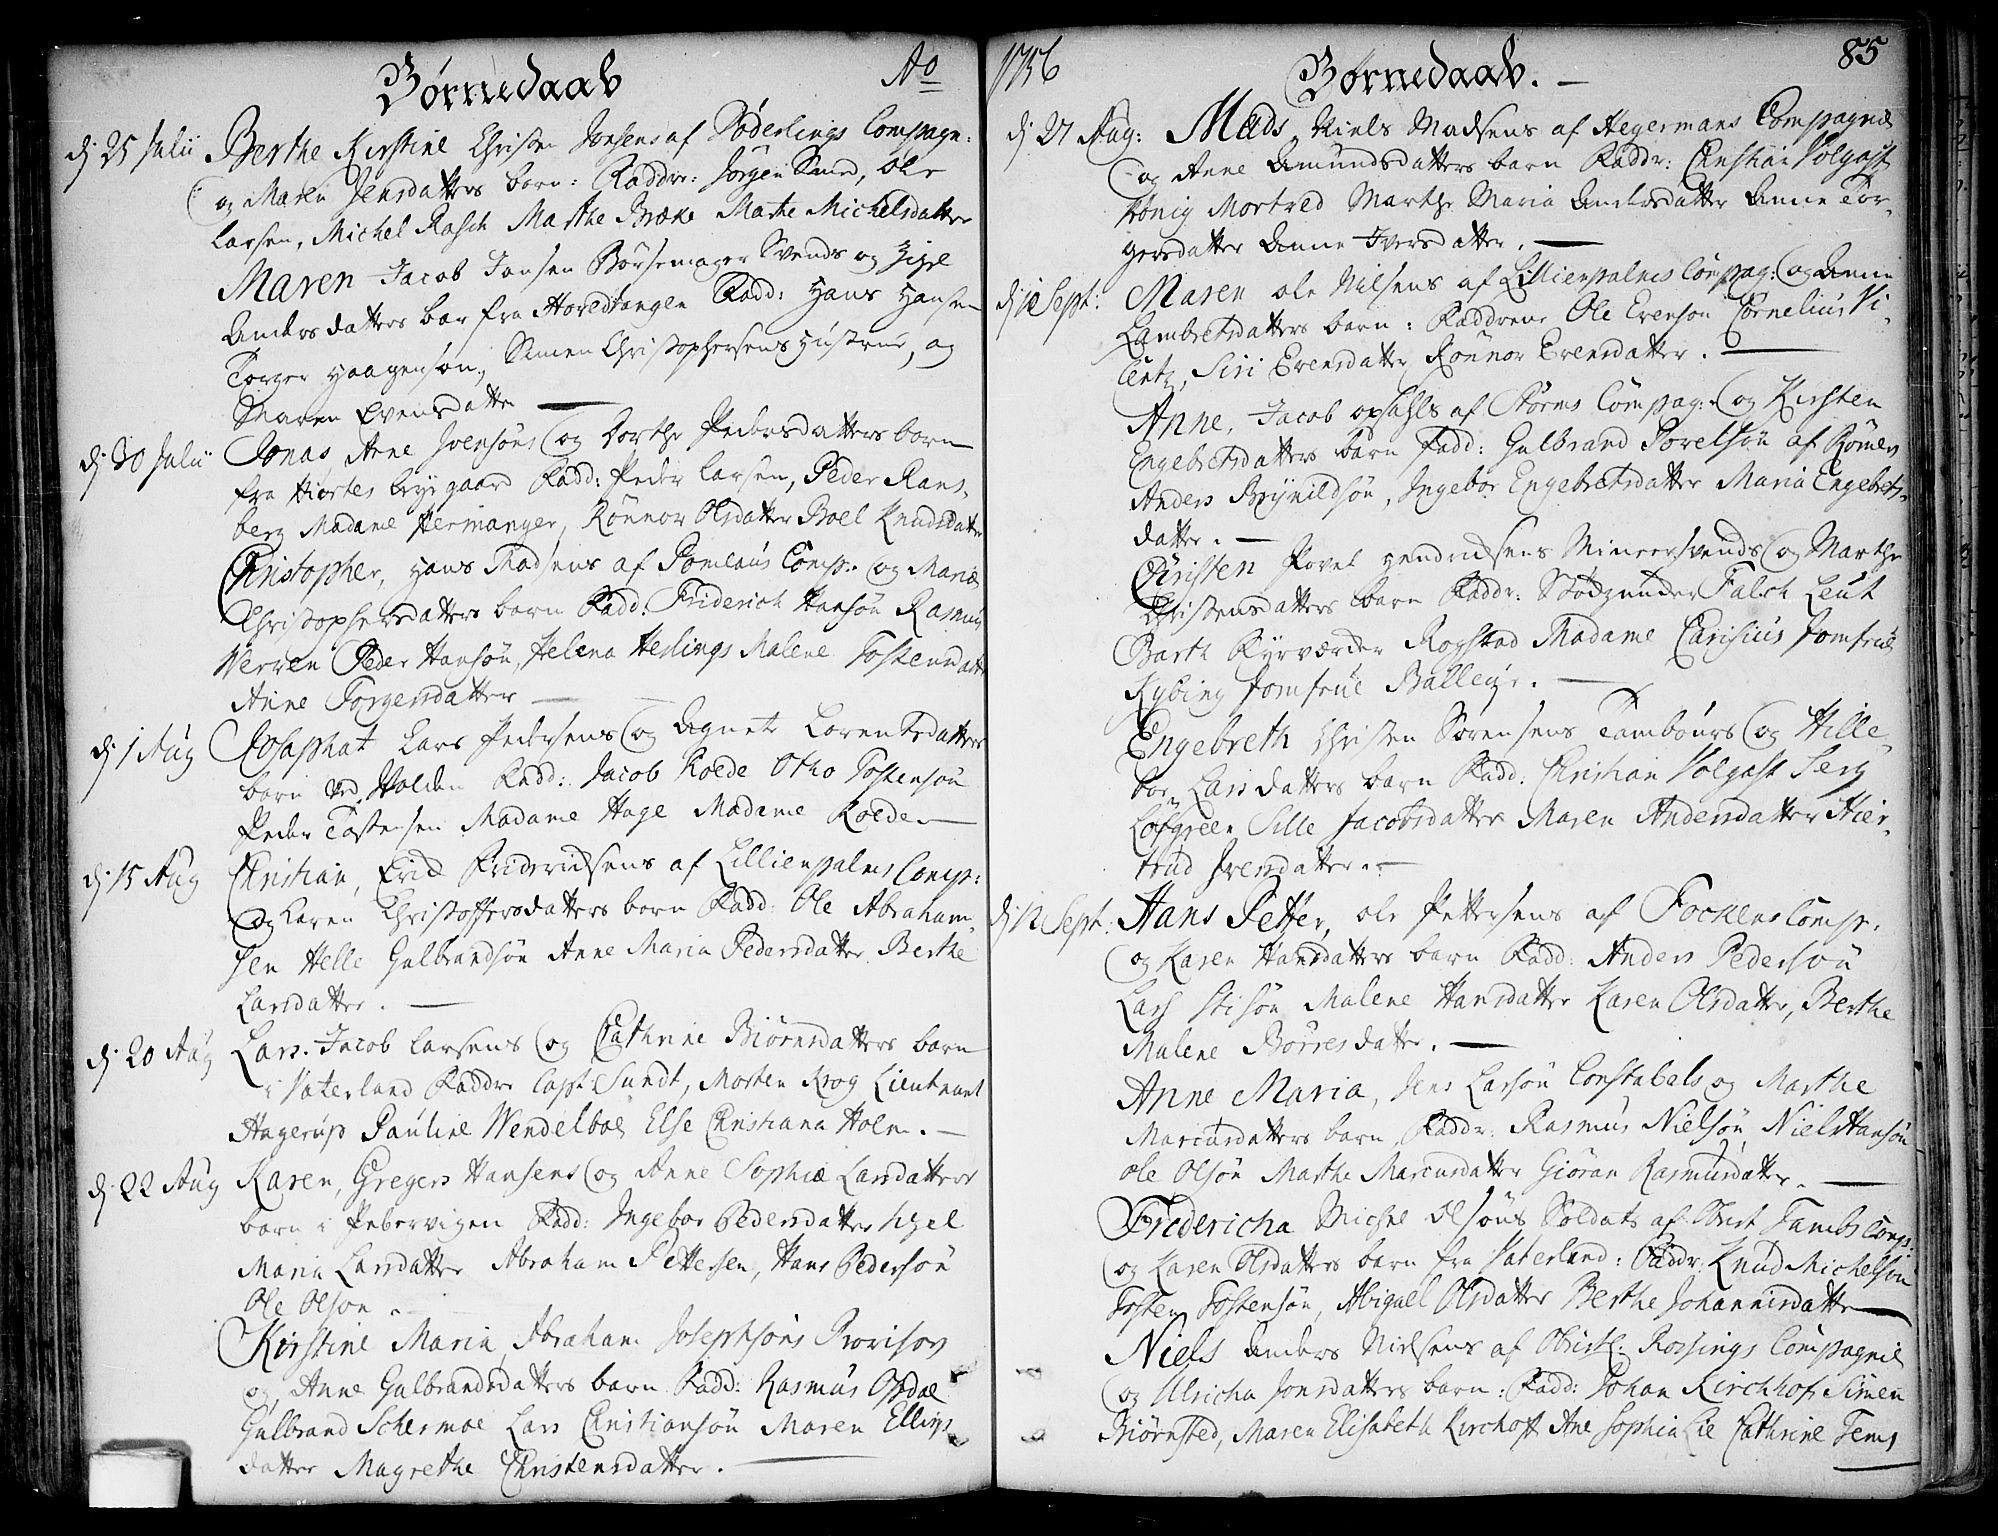 Børnedaab Ao
dj 25 Julii Berthe Kirstine Christen Jonsens af Søderlings Compagn:
og Maren Jensdatters barn: Faddre: Jørgen Smed, Ole
Larsen, Michel Rasch Marthe Bræke Marthe Michelsdatter
Maren Jacob Jansen Børsemager Svends og Zigl
Andersdatters bar fra Hovedtangen Fadd: Hans Hansen
Torger Haagensøn, Simen Christophersens Hustrue, og
Maren Evensdatter
dj 30 Julii Jonas Arne Joensøns og Dorthe Pedersdatters barn
fra Hiortes Brygaard Fadd: Peder Larsen, Peder Rans-
berg Madame Hermanger, Rønnov Olsdatter Boel Knudsdatter
Christopher, Hans Madsens af Pomlaus Comp: og Mariæ
Christophersdatters barn Fadd: Friderich Hansøn Rasmus
Werren Peder Hansøn, Helena Herlings Malene Tostensdatter
Anne Torgersdatter
dj 1 Aug Josaphat Lars Pedersens og Agnete Lorentsdatters
barn ved Holden Fadd: Jacob Koede Otho Tostensøn
Peder Tostensen Madame Hage Madame Koede
dj 15 Aug Christian, Erich Friderichsens af Lillienpalms Comp:
og Karen Christoffersdatters barn Fadd: Ole Abraham-
sen Helle Gulbrandsøn Anne Maria Pedersdatter Berthe
Larsdatter.
dj 20 Aug Lars. Jacob Larsens og Cathrine Biørnsdatters barn
i Vaterland Faddre Capt: Sundt, Morten Krog Lieutnant
Hagerup Pauline Wendelboe Else Christiana Holm.
dj 22 Aug Karen, Gregers Hansens og Anne Sophiæ Larsdatters
barn i Pebervigen Fadd: Ingebor Pedersdatter
Maria Larsdatter Abraham Pettersen, Hans Pedersøn
Ole Olson.
Kirstine Maria Abraham Josephsøns Provisor
og Anne Gulbrandsdatters barn Fadd: Rasmus Opdal
Gulbrand Schermoe Lars Christiansøn Maren Ellings
datter Magrethe Christensdatter.
1756 Børnedaab. 85
dj 27 Aug: Mads, Niels Madsens af Hegermans Compagnie
og Anne Amundsdatters barn Faddr: Christian Volgast
König Mortred Marthe Maria Andersdatter Anne Tor-
gersdatter Anne Iversdatter.
dj Sept: Maren Ole Nilsens af Lillienpalms Compag: og Anne
Lambretsdatters barn: Faddrene Ole Evensøn Cornelius Vi-
centz, Siri Evensdatter Rønnov Evensdatter.
Anne, Jacob Opsahls af Storms Compag: og Kirsten
Engebretsdatters barn Fadd: Gulbrand Torelsøn af Romer
Anders Brynildsøn, Ingebor Engebretsdatter Maria Engebrets-
datter.
Christen Povel Hendrichsens Mineersvends og Marthe
Christensdatters barn Faddr: Stødzunder Falch Leut
Barth Fyrværder Rogstad Madame Carisius Jomfrue
Kybing Jomfrue Balleur.
Engebreth Christen Sørensens Tambours og Hille
bor Larsdatters barn Fadd: Christian Volgast Serg
Løfgreen Sille Jacobsdatter Maren Andersdatter Hier-
trud Iversdatter.
dj 12 Sept: Hans Petter, Ole Pettersens af Fockens Comp.
og Karen Hansdatters barn Fadd: Anders Pedersøn
Lars Stisøn Malene Hansdatter Karen Olsdatter, Berthe
Malene Børresdatter.
Anne Maria, Jens Larsøn Constabels og Marthe
Marcusdatters barn, Faddr: Rasmus Nielsøn, Niels Hansøn
Ole Olsøn Marthe Marcusdatter Giøran Rasmusdatter.
Fredericha Michel Olsøns Soldats af Obrst Tambs Comp:
og Karen Olsdatters barn fra Vaterland: Faddr: Knud Michelsøn
Tosten Tostensøn, Abiguel Olsdatter Berthe Johannisdatter
Niels Anders Nielsens af Obristl. Rossings Compagnie
og Ulricha Jonsdatters barn: Fadd: Johan Kirchhof Simen
Biørnsted, Maren Elisabeth Kirchoff Ane Sophia Lie Cathrine Tems